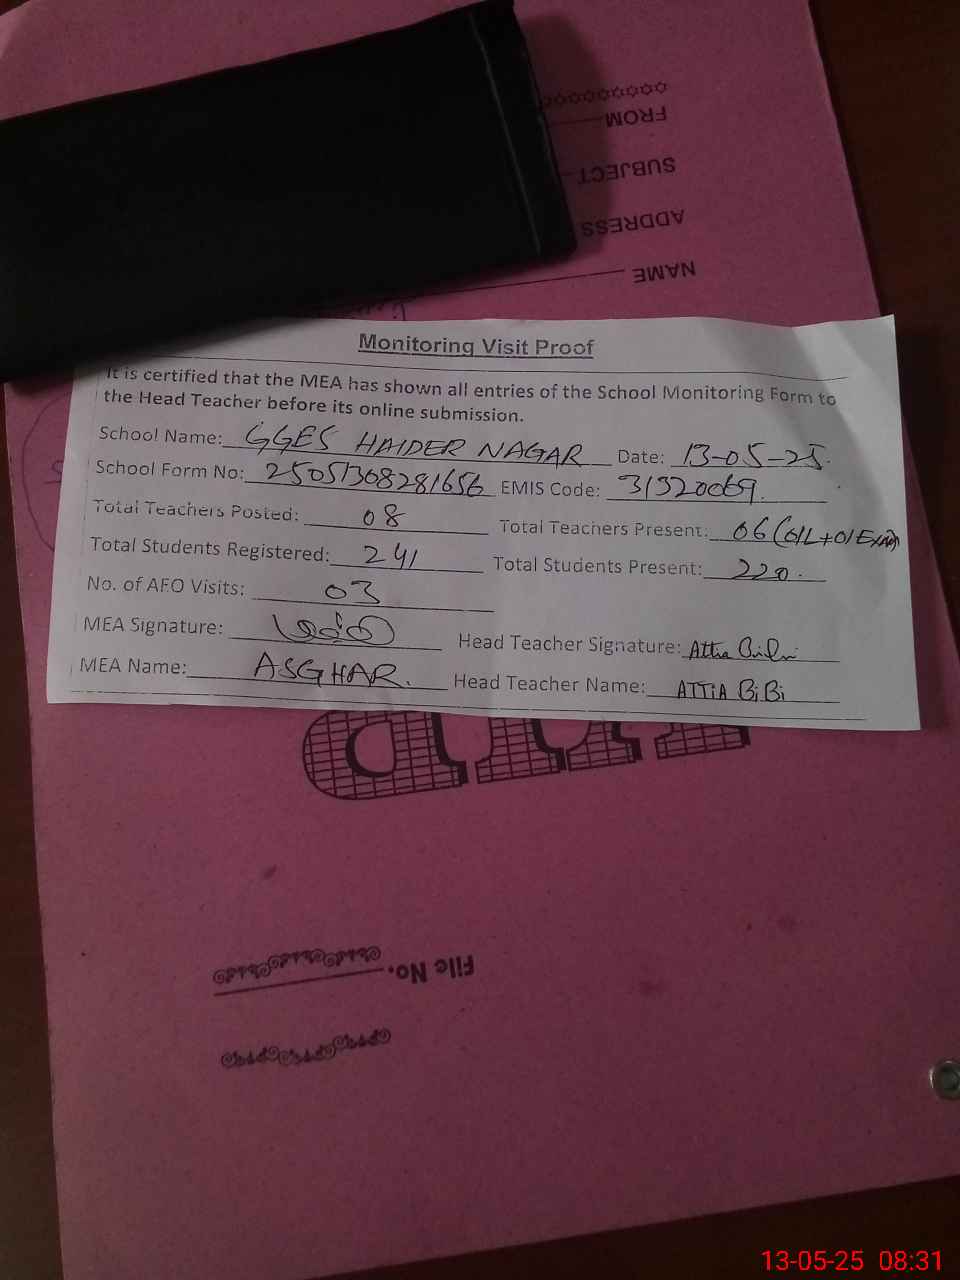 FROM
SUBJECT
ADDRESS
NAME
Monitoring Visit Proof
It is certified that the MEA has shown all entries of the School Monitoring Form to
the Head Teacher before its online submission.
School Name: GGES HAIDER NAGAR Date: 13-05-25.
School Form No: 25051308281656 EMIS Code: 31320069.
Total Teachers Posted: 08 Total Teachers Present: 06 (01L+01Exam)
Total Students Registered: 241 Total Students Present: 220.
No. of AEO Visits: 03
MEA Signature: Head Teacher Signature: Attia Bibi
MEA Name: ASGHAR. Head Teacher Name: ATTIA BiBi
File No.
13-05-25 08:31